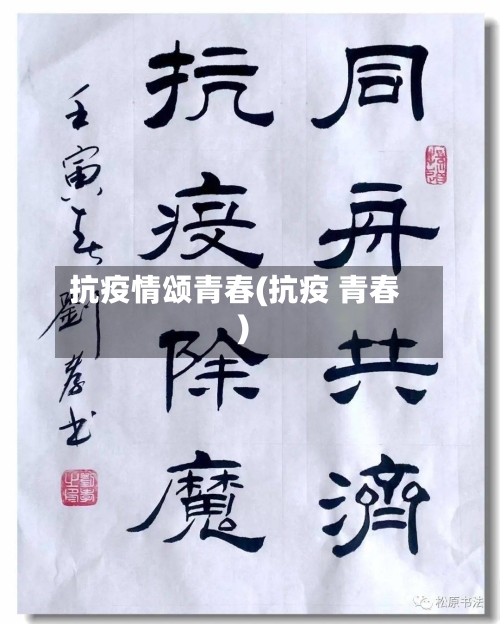 同舟共濟
抗疫除魔
壬寅春劉孝书
抗疫情颂青春(抗疫 青春
)
松原书法